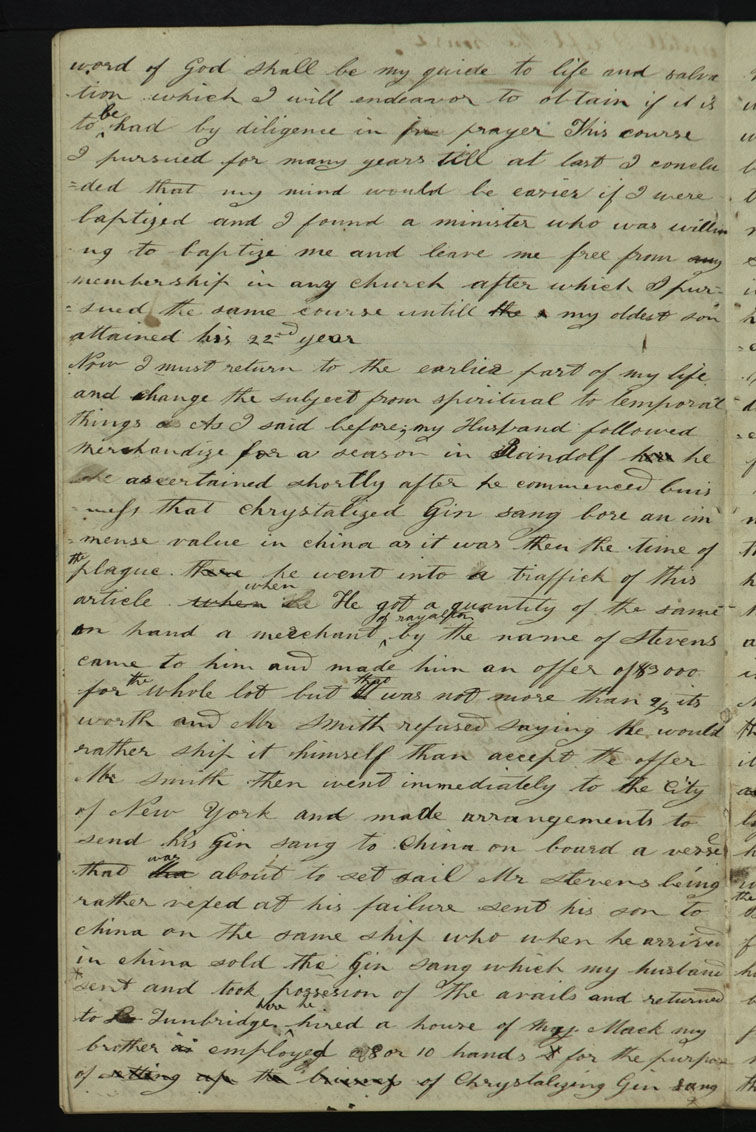 word of God shall be my guide to life and salva
tion which I will endeavor to obtain if it is
to be had by diligence in prayer This course
I pursued for many years till at last I conclu
=ded that my mind would be easier if I were
baptized and I found a minister who was willin
ng to baptize me and leave me free from any
membership in any church after which I pur=
=sued the same course untill the my oldest son
attained his 22nd year
Now I must return to the earlier part of my life
and change the subject from spiritual to temporal
things As I said before my Husband followed
merchandize for a season in Randolf he
ascertained shortly after he commenced buis
=ness that chrystalized Gin sang bore an im
=mense value in china as it was then the time of
the plague there he went into a traffick of this
article when when He got a quantity of the same
on hand a merchant of royalton by the name of Stevens
came to him and made him an offer of $3000
for the whole lot but this was not more than 2/3 its
worth and Mr Smith refused saying he would
rather ship it himself than accept the offer
Mr Smith then went immediately to the City
of New York and made arrangements to
send his Gin sang to China on board a vesse
that was about to set sail Mr Stevens being
rather vexed at his failure sent his son to
china on the same ship who when he arrived
in china sold the Gin sang which my husband
sent and took possesion of the avails and returned
to Tunbridge here he hired a house of Maj. Mack my
brother employed 8 or 10 hands for the purpose
of setting up the buisness of Chrystalizing Gin sang